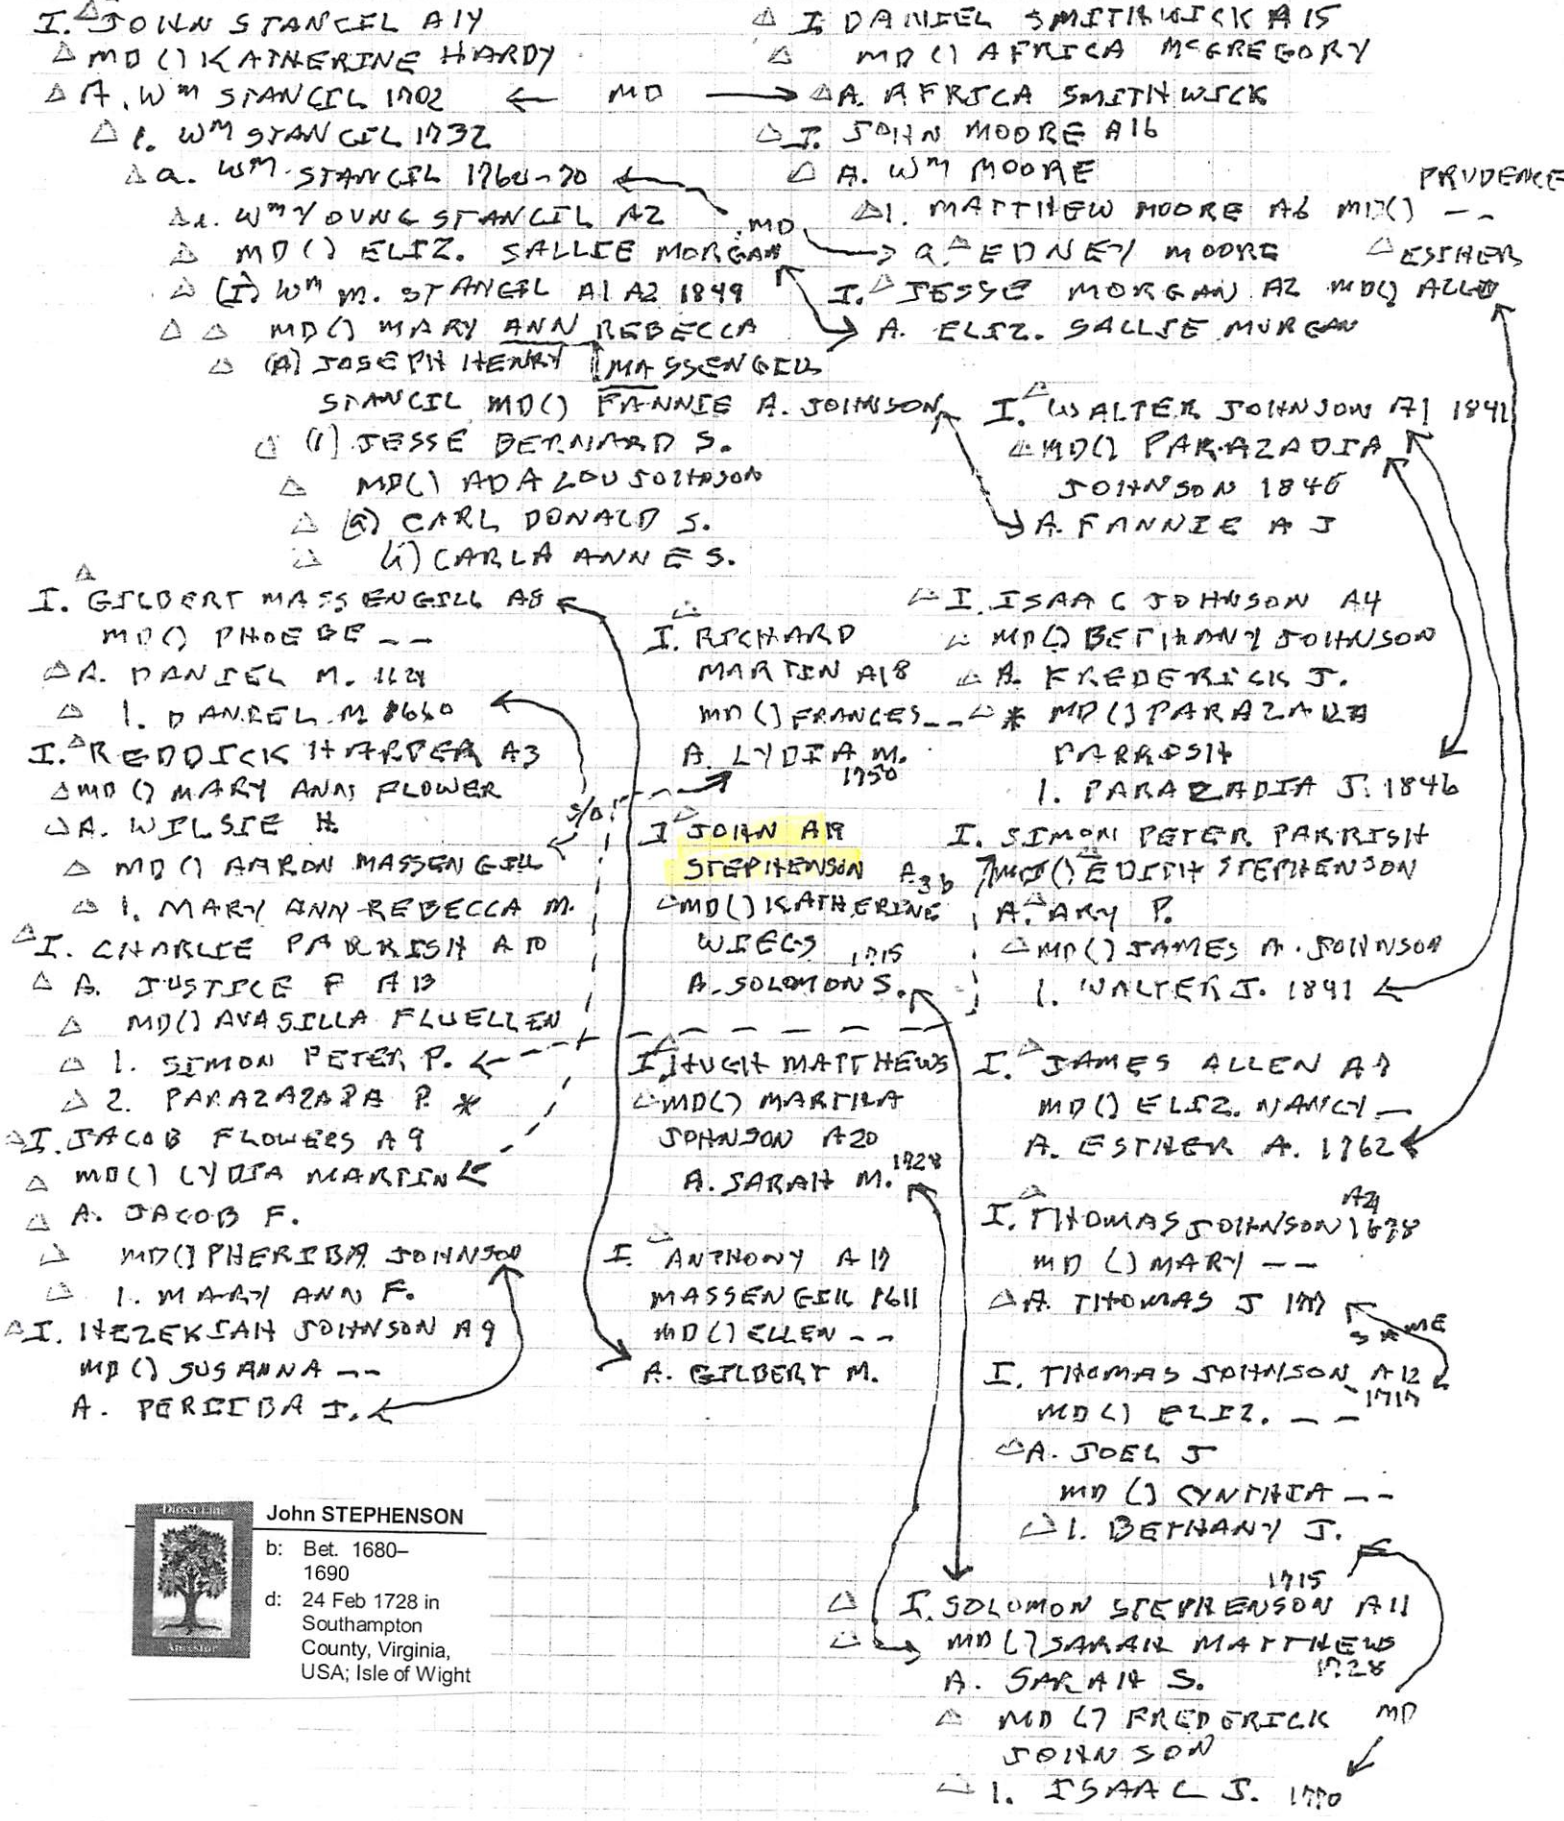 I. JOHN STANCIL A14
MD () KATHERINE HARDY
A. Wm STANCIL 1702 ← MD →
1. Wm STANCIL 1732
a. Wm STANCIL 1760-70
i. Wm YOUNG STANCIL A2
MD () ELIZ. SALLIE MORGAN
(I) Wm M. STANCIL A1 A2 1849
MD () MARY ANN REBECCA
MASSENGILL
(A) JOSEPH HENRY
STANCIL MD () FANNIE A. JOHNSON
(1) JESSE BERNARD S.
MD () ADA LOU JOHNSON
(a) CARL DONALD S.
(i) CARLA ANNE S.
I. DANIEL SMITHWICK A15
MD () AFRICA McGREGORY
A. AFRICA SMITHWICK
I. JOHN MOORE A16
A. Wm MOORE
PRUDENCE
1. MATTHEW MOORE A6 MD () --
MD
a. EDNEY MOORE
ESTHER
I. JESSE MORGAN A2 MD () ALLEN
A. ELIZ. SALLIE MORGAN
I. WALTER JOHNSON A1 1841
MD () PARAZADIA
JOHNSON 1846
A. FANNIE A J
I. GILBERT MASSENGILL A8
MD () PHOEBE --
A. DANIEL M.
1. DANIEL M
I. REDDICK HARPER A3
MD () MARY ANN FLOWER
A. WILSIE H.
MD () AARON MASSENGILL
1. MARY ANN REBECCA M.
I. CHARLIE PARRISH A10
A. JUSTICE P A13
MD () AVASILLA FLUELLEN
1. SIMON PETER P.
2. PARAZAZADA P. *
I. JACOB FLOWERS A9
MD () LYDIA MARTIN
A. JACOB F.
MD () PHERIBA JOHNSON
1. MARY ANN F.
I. HEZEKIAH JOHNSON A9
MD () SUSANNA --
A. PERIIBA J.
S/O
I. RICHARD
MARTIN A18
MD () FRANCES --
A. LYDIA M.
1750
I JOHN A19
STEPHENSON A3b
MD () KATHERINE
WIEGS
1715
A. SOLOMON S.
I. HUGH MATTHEWS
MD () MARTHA
JOHNSON A20
1728
A. SARAH M.
I. ANTHONY A17
MASSENGILL 1611
MD () ELLEN --
A. GILBERT M.
I. ISAAC JOHNSON A4
MD () BETHANY JOHNSON
A. FREDERICK J.
* MD () PARAZADA
PARRISH
1. PARAZADIA J. 1846
I. SIMON PETER PARRISH
MD () EDITH STEPHENSON
A. ARY P.
MD () JAMES A. JOHNSON
1. WALTER J. 1841
I. JAMES ALLEN A7
MD () ELIZ. NANCY --
A. ESTHER A. 1762
A21
I. THOMAS JOHNSON 1678
MD () MARY --
A. THOMAS J 1717
SAME
I. THOMAS JOHNSON A12
1717
MD () ELIZ. --
A. JOEL J
MD () CYNTHIA --
1. BETHANY J.
1715
I. SOLOMON STEPHENSON A11
MD () SARAH MATTHEWS
1728
A. SARAH S.
MD () FREDERICK
JOHNSON
MD
1. ISAAC J. 1770
Direct Line
Ancestor
John STEPHENSON
b: Bet. 1680–
1690
d: 24 Feb 1728 in
Southampton
County, Virginia,
USA; Isle of Wight